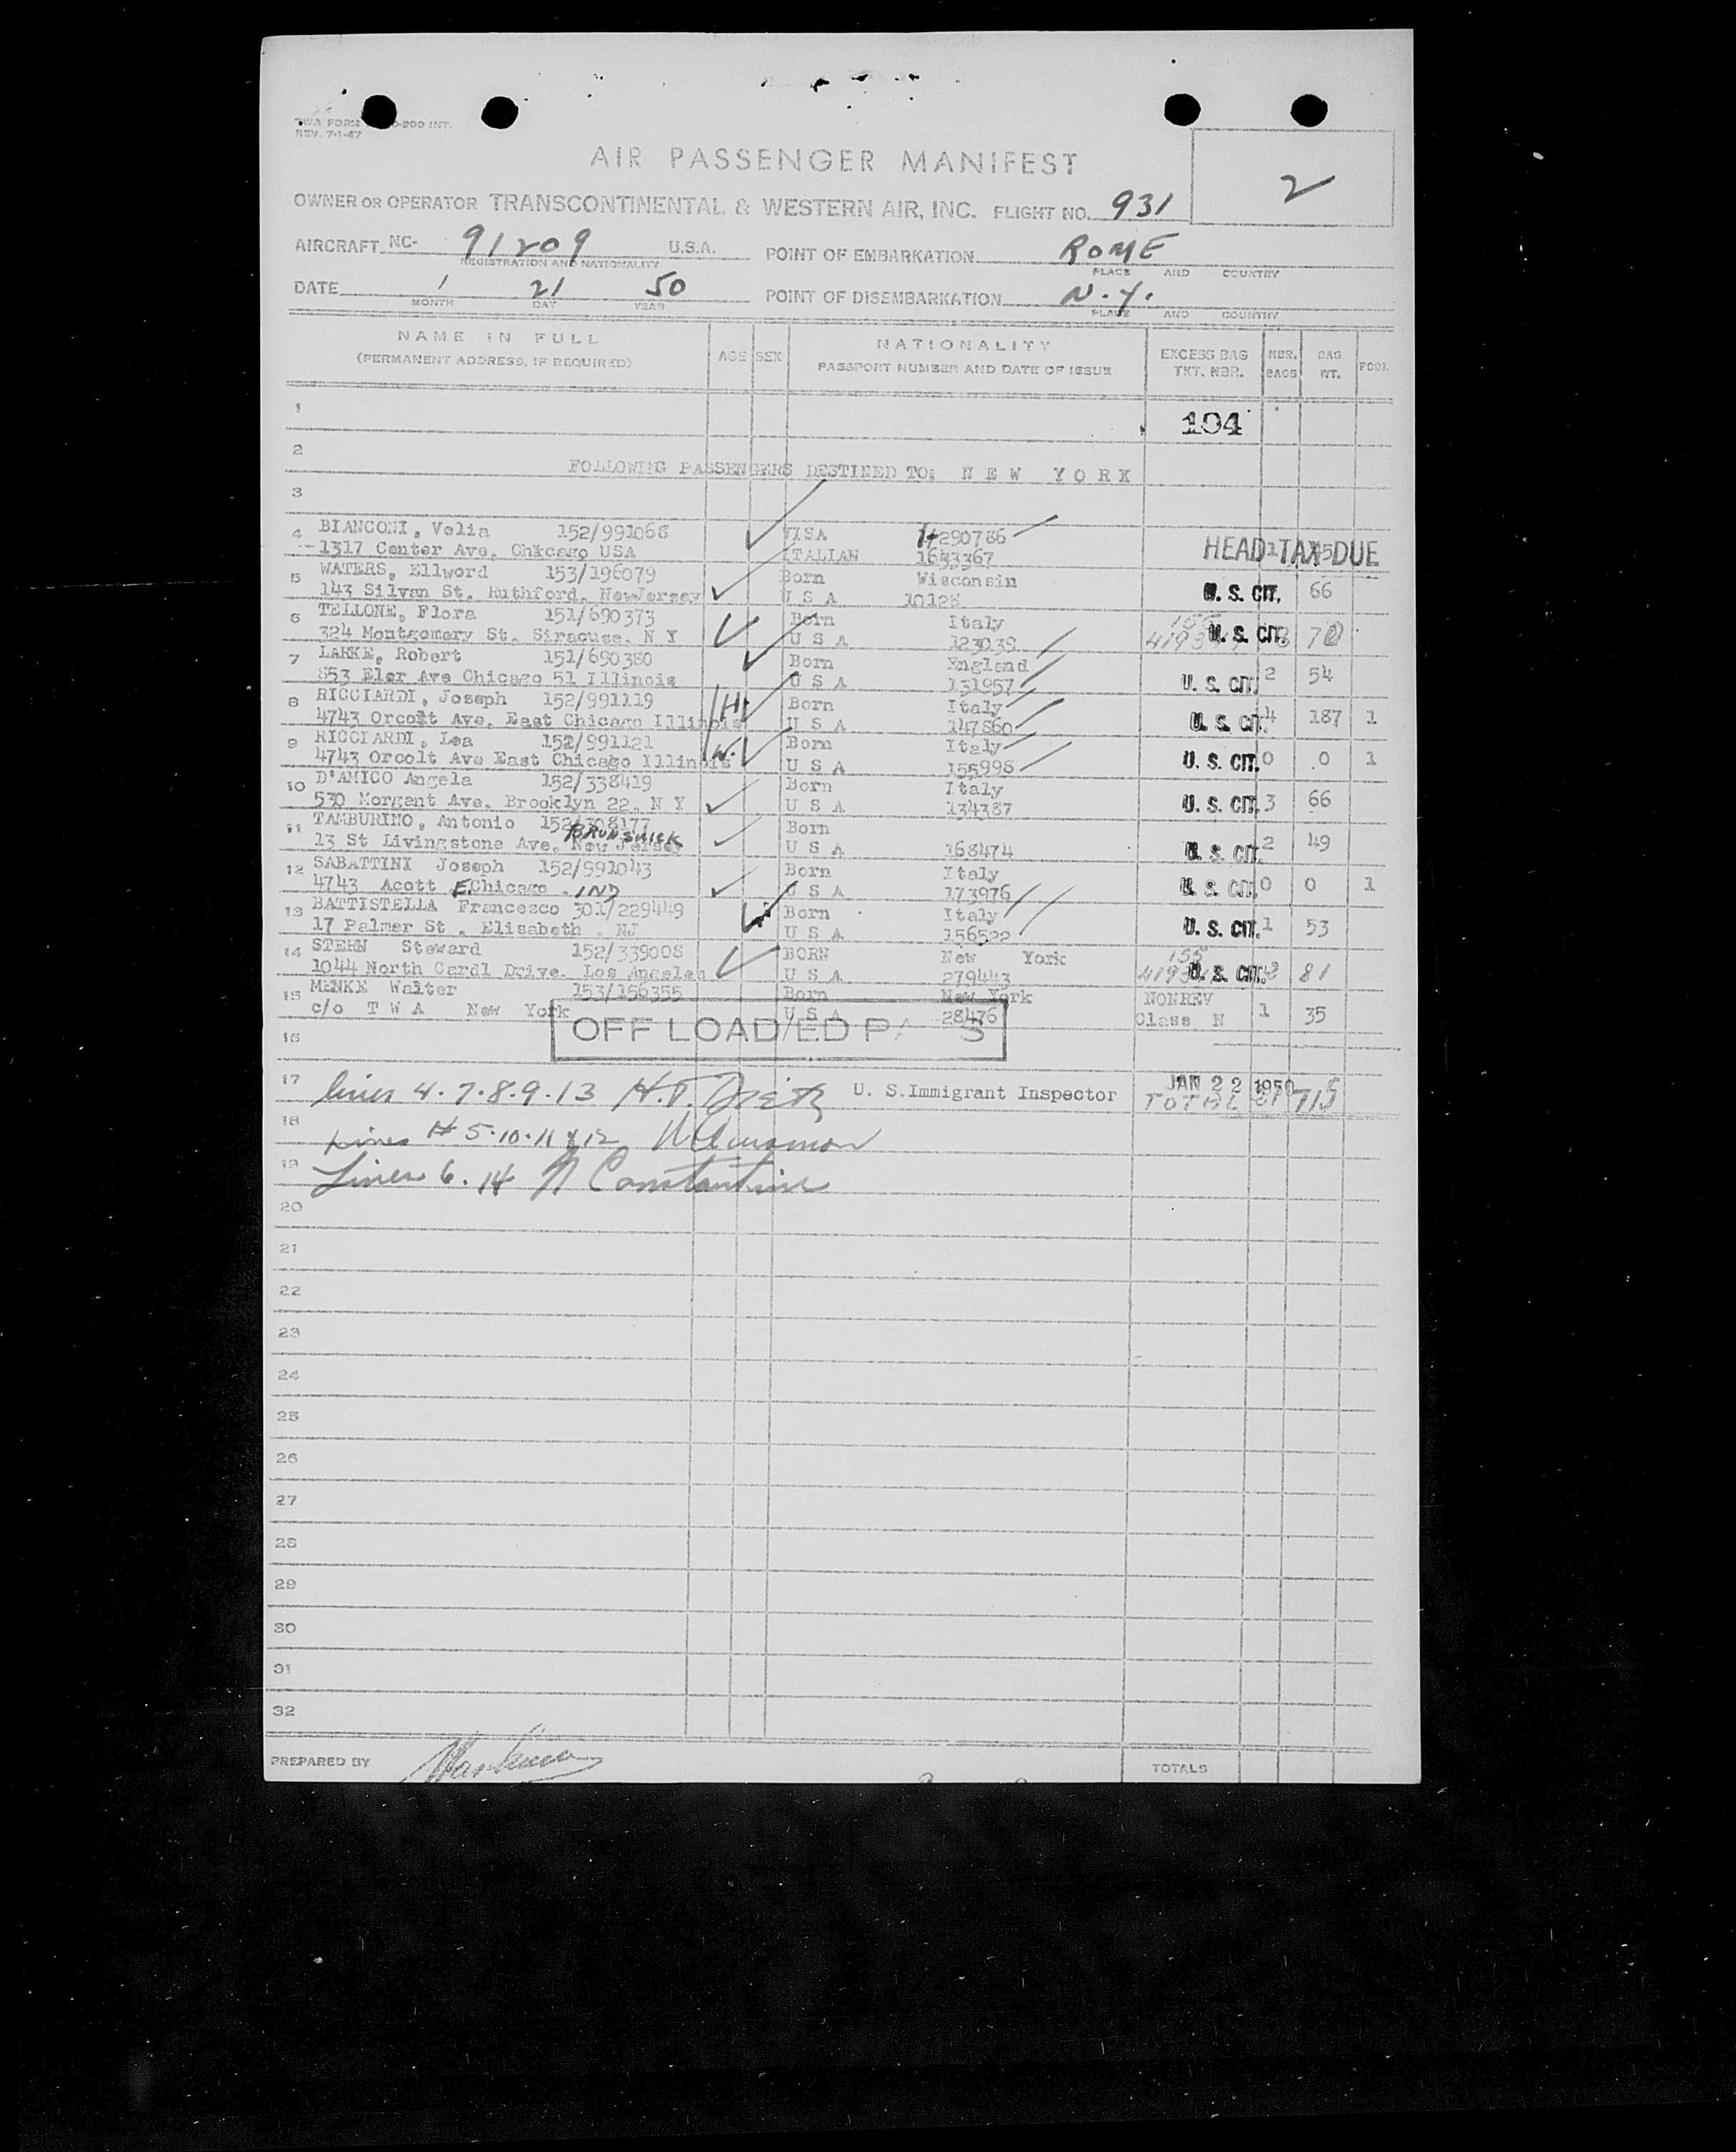 TWA FORM 0-200 INT.
REV. 7-1-47
AIR PASSENGER MANIFEST
2
OWNER OR OPERATOR TRANSCONTINENTAL & WESTERN AIR, INC. FLIGHT NO. 931
AIRCRAFT NC- 91209 U.S.A. POINT OF EMBARKATION ROME
REGISTRATION AND NATIONALITY PLACE AND COUNTRY
DATE 1 21 50 POINT OF DISEMBARKATION N.Y.
MONTH DAY YEAR PLACE AND COUNTRY
NAME IN FULL AGE SEX NATIONALITY EXCESS BAG NBR. BAG POOL
(PERMANENT ADDRESS, IF REQUIRED) PASSPORT NUMBER AND DATE OF ISSUE TKT. NBR. BAGS WT.
1 104
2
FOLLOWING PASSENGERS DESTINED TO: NEW YORK
3
4 BIANCONI, Velia 152/991068 VISA 290786
1317 Center Ave. Chicago USA ITALIAN 1633367 HEAD TAX DUE
5 WATERS, Ellword 153/196079 Born Wisconsin
143 Silvan St. Ruthford, NewJersey U S A 10128 U. S. CIT. 66
6 TELLONE, Flora 151/690373 Born Italy
324 Montgomery St. Siracuse. N Y U S A 123039 U. S. CIT.
7 LARKE, Robert 151/690380 Born England
853 Eler Ave Chicago 51 Illinois U S A 131957 U. S. CIT. 2 54
8 RICCIARDI, Joseph 152/991119 H Born Italy
4743 Orcolt Ave. East Chicago Illinois U S A 147860 U. S. CIT. 4 187 1
9 RICCIARDI, Lea 152/991121 W. Born Italy
4743 Orcolt Ave East Chicago Illinois U S A 155998 U. S. CIT. 0 0 1
10 D'AMICO Angela 152/338419 Born Italy
530 Morgant Ave. Brooklyn 22, N Y U S A 134387 U. S. CIT. 3 66
11 TAMBURINO, Antonio 152/308177 Born
BRUNSWICK
13 St Livingstone Ave. New Jersey U S A 168474 U. S. CIT. 2 49
12 SABATTINI Joseph 152/991043 Born Italy
4743 Acott E.Chicago . IND U S A 173976 U. S. CIT. 0 0 1
13 BATTISTELLA Francesco 301/229449 Born Italy
17 Palmer St . Elisabeth . NJ U S A 156522 U. S. CIT. 1 53
14 STERN Steward 152/339008 BORN New York 155
1044 North Cardl Drive. Los Angeles U S A 279443 U. S. CIT. 81
15 MENKE Walter 153/156355 Born New York NONREV
c/o T W A New York U S A 28476 Class N 1 35
16 OFF LOADED
17 lines 4.7.8.9.13 U. S. Immigrant Inspector JAN 22 1950
TOTAL 715
18 Lines # 5.10.11 & 12
19 Lines 6. 14 N Constantine
20
21
22
23
24
25
26
27
28
29
30
31
32
PREPARED BY TOTALS